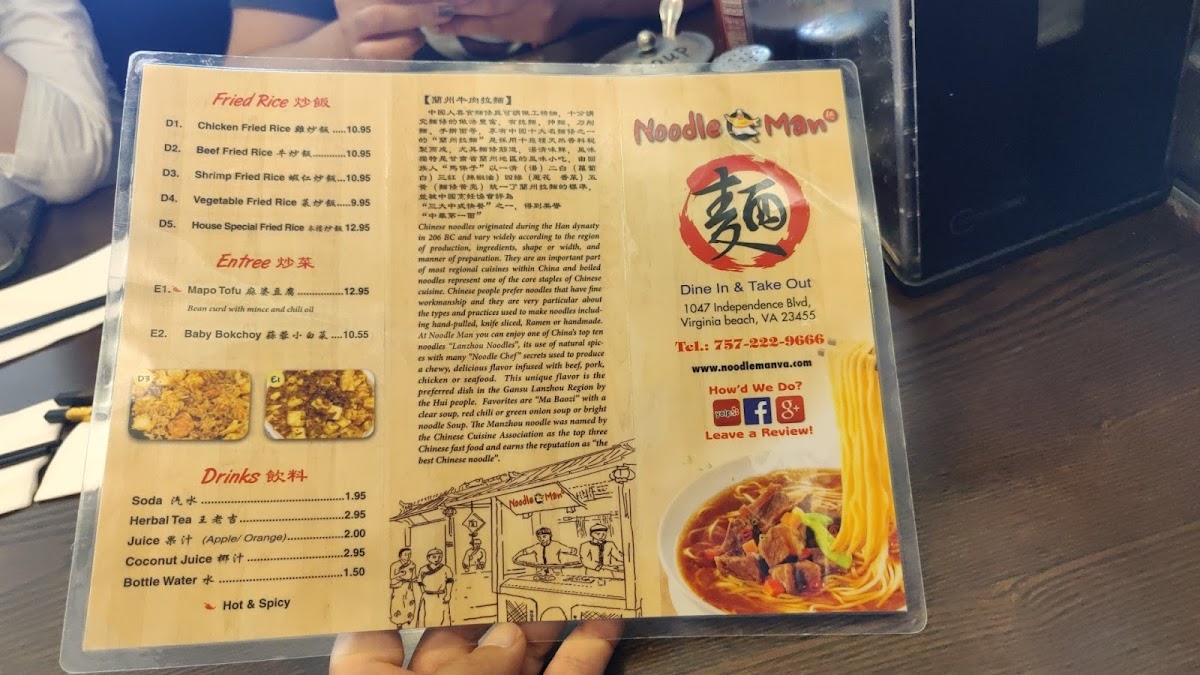 Fried Rice 炒飯
D1. Chicken Fried Rice 雞炒飯 .....10.95
D2. Beef Fried Rice 牛炒飯............10.95
D3. Shrimp Fried Rice 蝦仁炒飯...10.95
D4. Vegetable Fried Rice 菜炒飯.....9.95
D5. House Special Fried Rice 本樓炒飯 12.95
Entree 炒菜
E1. Mapo Tofu 麻婆豆腐 ................12.95
Bean curd with mince and chili oil
E2. Baby Bokchoy 蒜蓉小白菜 ....10.55
D3
E1
Drinks 飲料
Soda 汽水 ..........................................1.95
Herbal Tea 王老吉..............................2.95
Juice 果汁 (Apple/ Orange)................2.00
Coconut Juice 椰汁............................2.95
Bottle Water 水 ..................................1.50
Hot & Spicy
【蘭州牛肉拉麵】
中國人喜食麵條且可謂做工精細，十分講
究麵條的做法豐富，有拉麵，抻麵，刀削
麵，手擀面等，享有中國十大名麵條之一
的“蘭州拉麵”是採用十幾種天然香料秘
製而成，尤其麵條筋道，湯清味鮮，風味
獨特是甘肅省蘭州地區的風味小吃，由回
族人“馬保子”以一清（湯）二白（蘿蔔
白）三紅（辣椒油）四綠（蔥花 香菜）五
黃（麵條黃亮）統一了蘭州拉麵的標準，
並被中國烹飪協會評為
“三大中式快餐”之一，得到美譽
“中華第一面”
Chinese noodles originated during the Han dynasty
in 206 BC and vary widely according to the region
of production, ingredients, shape or width, and
manner of preparation. They are an important part
of most regional cuisines within China and boiled
noodles represent one of the core staples of Chinese
cuisine. Chinese people prefer noodles that have fine
workmanship and they are very particular about
the types and practices used to make noodles includ-
ing hand-pulled, knife sliced, Ramen or handmade.
At Noodle Man you can enjoy one of China's top ten
noodles "Lanzhou Noodles", its use of natural spic-
es with many "Noodle Chef" secrets used to produce
a chewy, delicious flavor infused with beef, pork,
chicken or seafood. This unique flavor is the
preferred dish in the Gansu Lanzhou Region by
the Hui people. Favorites are "Ma Baozi" with a
clear soup, red chili or green onion soup or bright
noodle Soup. The Manzhou noodle was named by
the Chinese Cuisine Association as the top three
Chinese fast food and earns the reputation as "the
best Chinese noodle".
Noodle Man
麵
Noodle Man
麵
Dine In & Take Out
1047 Independence Blvd,
Virginia beach, VA 23455
Tel.: 757-222-9666
www.noodlemanva.com
How'd We Do?
yelp f g+
Leave a Review!